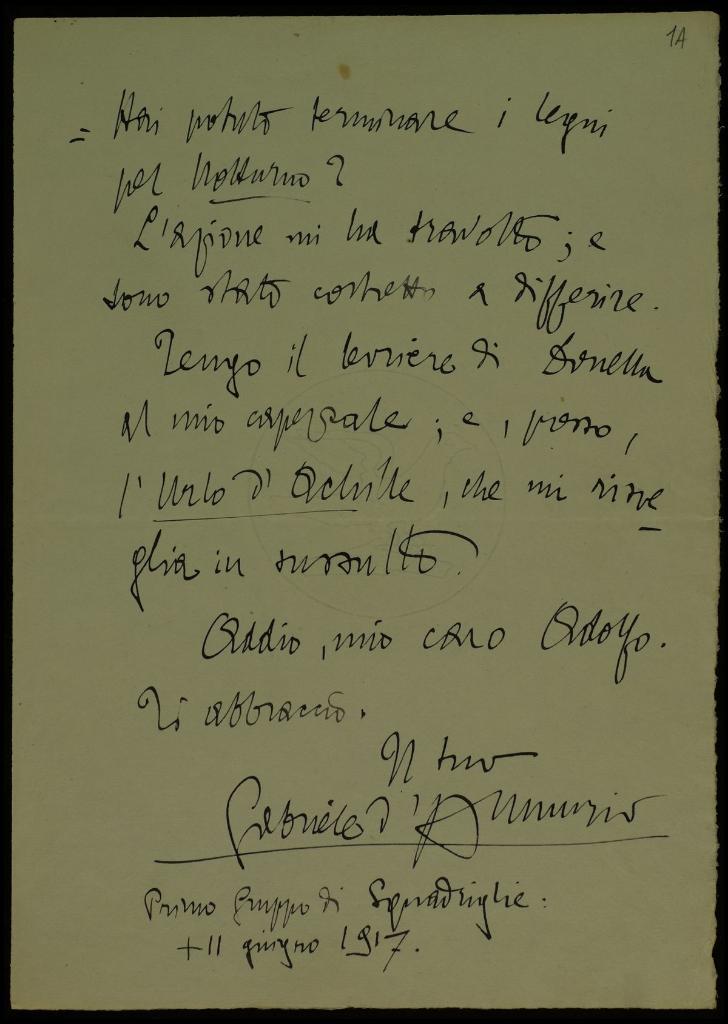 1A
= Hai potuto terminare i legni
pel Notturno?
L'azione mi ha travolto; e
sono stato costretto a differire.
Tengo il levriere di Donella
al mio capezzale; e, presso,
l'Urlo d'Achille, che mi risve=
glia in sussulto.
Addio, mio caro Adolfo.
Ti abbraccio.
Il tuo
Gabriele d'Annunzio
Primo Gruppo di Squadriglie:
+ 11 giugno 1917.